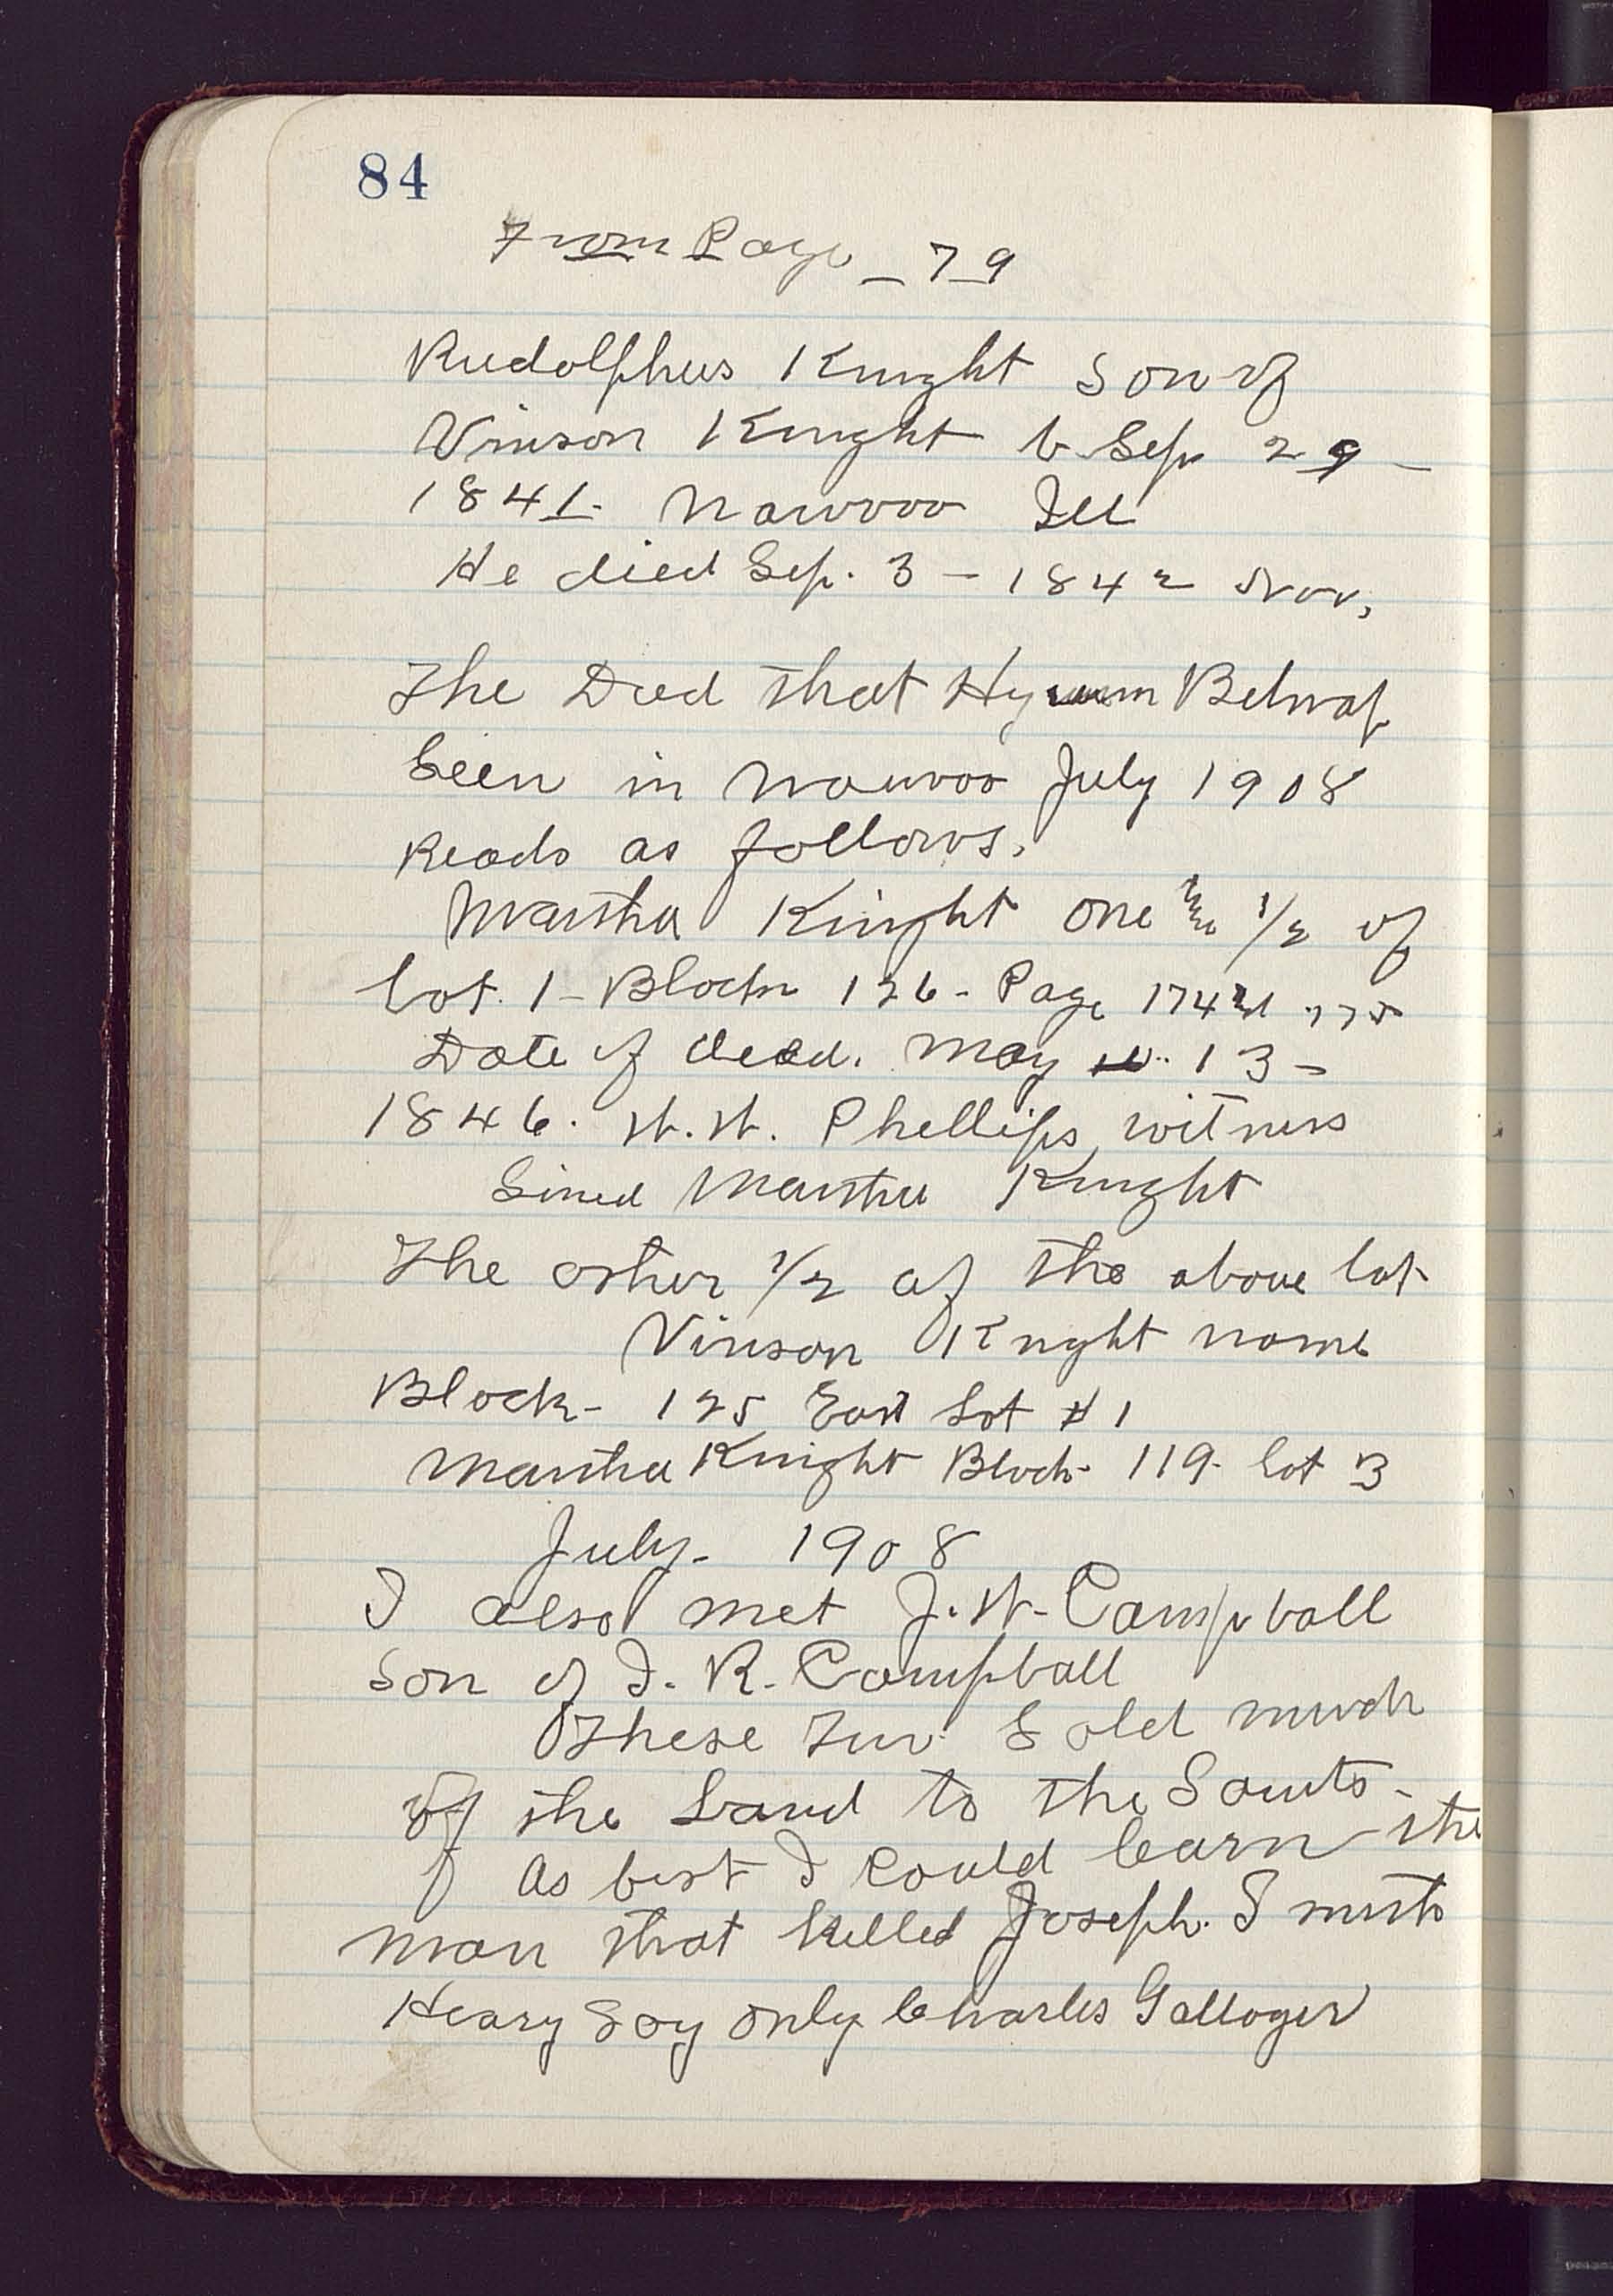 84
From Page - 79
Rudolphus Knight Son of
Vinson Knight b Sep 29 -
1841. Nauvoo Ill
He died Sep. 3 - 1842 Nov,
The Deed that Hyrum Belnap
Seen in Nauvoo July 1908
Reads as follows.
Martha Knight one 1/2 of
Lot. 1 - Block 126 - Page 174 775
Date of deed. May 13 -
1846. W. W. Phellips witness
Sined Martha Knight
The other 1/2 of the above lot
Vinson Knght name
Block - 125 East Lot # 1
Martha Knight Block - 119 - Lot 3
July - 1908
I also met J. W. Campball
Son of I. R. Campball
These two Sold much
of the Land to the Saints -
As best I Could learn the
man that Killed Joseph Smith
Heary Say only Charles Gallager